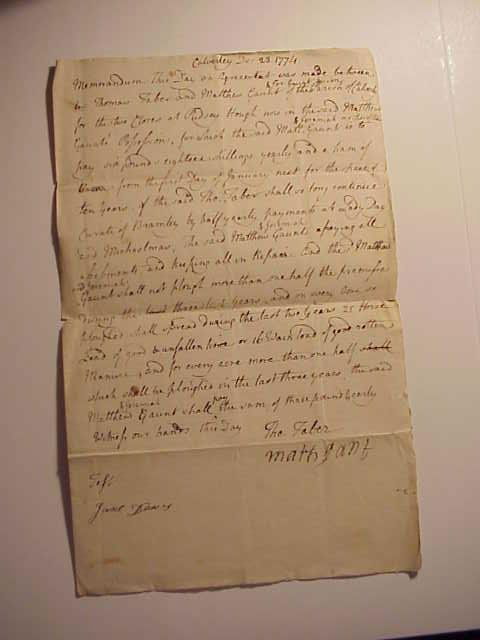 Calverley Dec 23 1774
Memorandum This Day an agreement was made between
us Thomas Taber and Matthew Gaunt of the Parish of
for the two Closes at Hough now in the said Matthew
& Jeremiah
Gaunts Possession, for which the said Matt. Gaunt is to
pay six pounds eighteen shillings yearly and a ham of
from the first Day of January next for the space of
ten Years, if the said Tho. Taber shall so long continue
Curate of Bramley by half yearly payments at Lady Day
& Jeremiah
and Michaelmas, The said Matthew Gaunt paying all
assesments, and keeping all in Repair. And the Matthew
and Jeremiah
Gaunt shall not plough more than one half the premises
during the last three Years, and on every acre so
ploughed shall spread during the last two Years 25 Horse
Load of good unfallen lime or 16 Wain load of good rotten
Manure, and for every acre more than one half shall
which shall be ploughed in the last three years the said
& Jeremiah
Matthew Gaunt shall pay the sum of three pound yearly
Witness our hands this Day
Tho. Taber
matt gant
Test